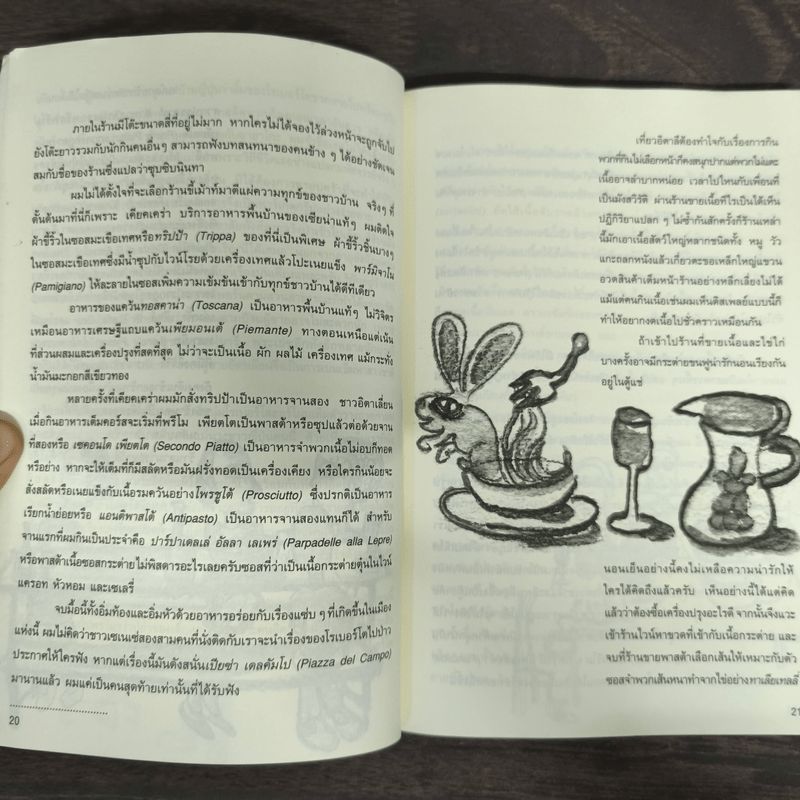 ภายในร้านมีโต๊ะขนาดสี่ที่อยู่ไม่มาก หากใครไม่ได้จองไว้ล่วงหน้าจะถูกจับไป
ยังโต๊ะยาวรวมกับนักกินคนอื่นๆ สามารถฟังบทสนทนาของคนข้าง ๆ ได้อย่างชัดเจน
สมกับชื่อของร้านซึ่งแปลว่าซุบซิบนินทา
ผมไม่ได้ตั้งใจที่จะเลือกร้านขี้เม้าท์มาตีแผ่ความทุกข์ของชาวบ้าน จริงๆ ที่
ดั้นด้นมาที่นี่ก็เพราะ เคียคเคร่า บริการอาหารพื้นบ้านของเซียน่าแท้ๆ ผมติดใจ
ผ้าขี้ริ้วในซอสมะเขือเทศหรือทริปป้า (Trippa) ของที่นี่เป็นพิเศษ ผ้าขี้ริ้วชิ้นบางๆ
ในซอสมะเขือเทศซึ่งมีน้ำซุปกับไวน์โรยด้วยเครื่องเทศแล้วโปะเนยแข็ง พาร์มิจาโน
(Pamigiano) ให้ละลายในซอสเพิ่มความเข้มข้นเข้ากับทุกข์ชาวบ้านได้ดีทีเดียว
อาหารของแคว้นทอสคาน่า (Toscana) เป็นอาหารพื้นบ้านแท้ๆ ไม่วิจิตร
เหมือนอาหารเศรษฐีแถบแคว้นเพียมอนเต้ (Piemante) ทางตอนเหนือแต่เน้น
ที่ส่วนผสมและเครื่องปรุงที่สดที่สุด ไม่ว่าจะเป็นเนื้อ ผัก ผลไม้ เครื่องเทศ แม้กระทั่ง
น้ำมันมะกอกสีเขียวทอง
หลายครั้งที่เคียคเคร่าผมมักสั่งทริปป้าเป็นอาหารจานสอง ชาวอิตาเลี่ยน
เมื่อกินอาหารเต็มคอร์สจะเริ่มที่พรีโม เพียตโตเป็นพาสต้าหรือซุปแล้วต่อด้วยจาน
ที่สองหรือ เซคอนโด เพียตโต (Secondo Piatto) เป็นอาหารจำพวกเนื้อไม่อบก็ทอด
หรือย่าง หากจะให้เต็มที่ก็มีสลัดหรือมันฝรั่งทอดเป็นเครื่องเคียง หรือใครกินน้อยจะ
สั่งสลัดหรือเนยแข็งกับเนื้อรมควันอย่างโพรชูโต้ (Prosciutto) ซึ่งปรกติเป็นอาหาร
เรียกน้ำย่อยหรือ แอนติพาสโต้ (Antipasto) เป็นอาหารจานสองแทนก็ได้ สำหรับ
จานแรกที่ผมกินเป็นประจำคือ ปาร์ปาเดลเล่ อัลลา เลเพร่ (Parpadelle alla Lepre)
หรือพาสต้าเนื้อซอสกระต่าย ไม่พิสดารอะไรเลยครับซอสที่ว่าเป็นเนื้อกระต่ายตุ๋นในไวน์
แครอท หัวหอม และเซเลรี่
จบมื้อนี้ทั้งอิ่มท้องและอิ่มหัวด้วยอาหารอร่อยกับเรื่องแซ่บ ๆ ที่เกิดขึ้นในเมือง
แห่งนี้ ผมไม่คิดว่าชาวเซเนเซ่สองสามคนที่นั่งติดกับเราจะนำเรื่องของโรเบอร์โตไปป่าว
ประกาศให้ใครฟัง หากแต่เรื่องนี้มันดังสนั่นเปียซ่า เดลคัมโป (Piazza del Campo)
มานานแล้ว ผมแค่เป็นคนสุดท้ายเท่านั้นที่ได้รับฟัง
20
เที่ยวอิตาลีต้องทำใจกับเรื่องการกิน
พวกที่กินไม่เลือกหน้าก็คงสนุกปากแต่พวกไม่แตะ
เนื้ออาจลำบากหน่อย เวลาไปไหนกับเพื่อนที่
เป็นมังสวิรัติ ผ่านร้านขายเนื้อทีไรเป็นได้เห็น
ปฏิกิริยาแปลก ๆ ไม่ซ้ำกันสักครั้งก็ร้านเหล่า
นี้มักเอาเนื้อสัตว์ใหญ่หลากชนิดทั้ง หมู วัว
แกะถลกหนังแล้วเกี่ยวตะขอเหล็กใหญ่แขวน
อวดสินค้าเต็มหน้าร้านอย่างหลีกเลี่ยงไม่ได้
แม้แต่คนกินเนื้อเช่นผมเห็นดิสเพลย์แบบนี้ก็
ทำให้อยากงดเนื้อไปชั่วคราวเหมือนกัน
ถ้าเข้าไปร้านที่ขายเนื้อและไข่ไก่
บางครั้งอาจมีกระต่ายขนฟูน่ารักนอนเรียงกัน
อยู่ในตู้แช่
นอนเย็นอย่างนี้คงไม่เหลือความน่ารักให้
ใครได้คิดถึงแล้วครับ เห็นอย่างนี้ได้แต่คิด
แล้วว่าต้องซื้อเครื่องปรุงอะไรดี จากนั้นจึงแวะ
เข้าร้านไวน์หาขวดที่เข้ากับเนื้อกระต่าย และ
จบที่ร้านขายพาสต้าเลือกเส้นให้เหมาะกับตัว
ซอสจำพวกเส้นหนาทำจากไข่อย่างทาเลียเทลลี่
21